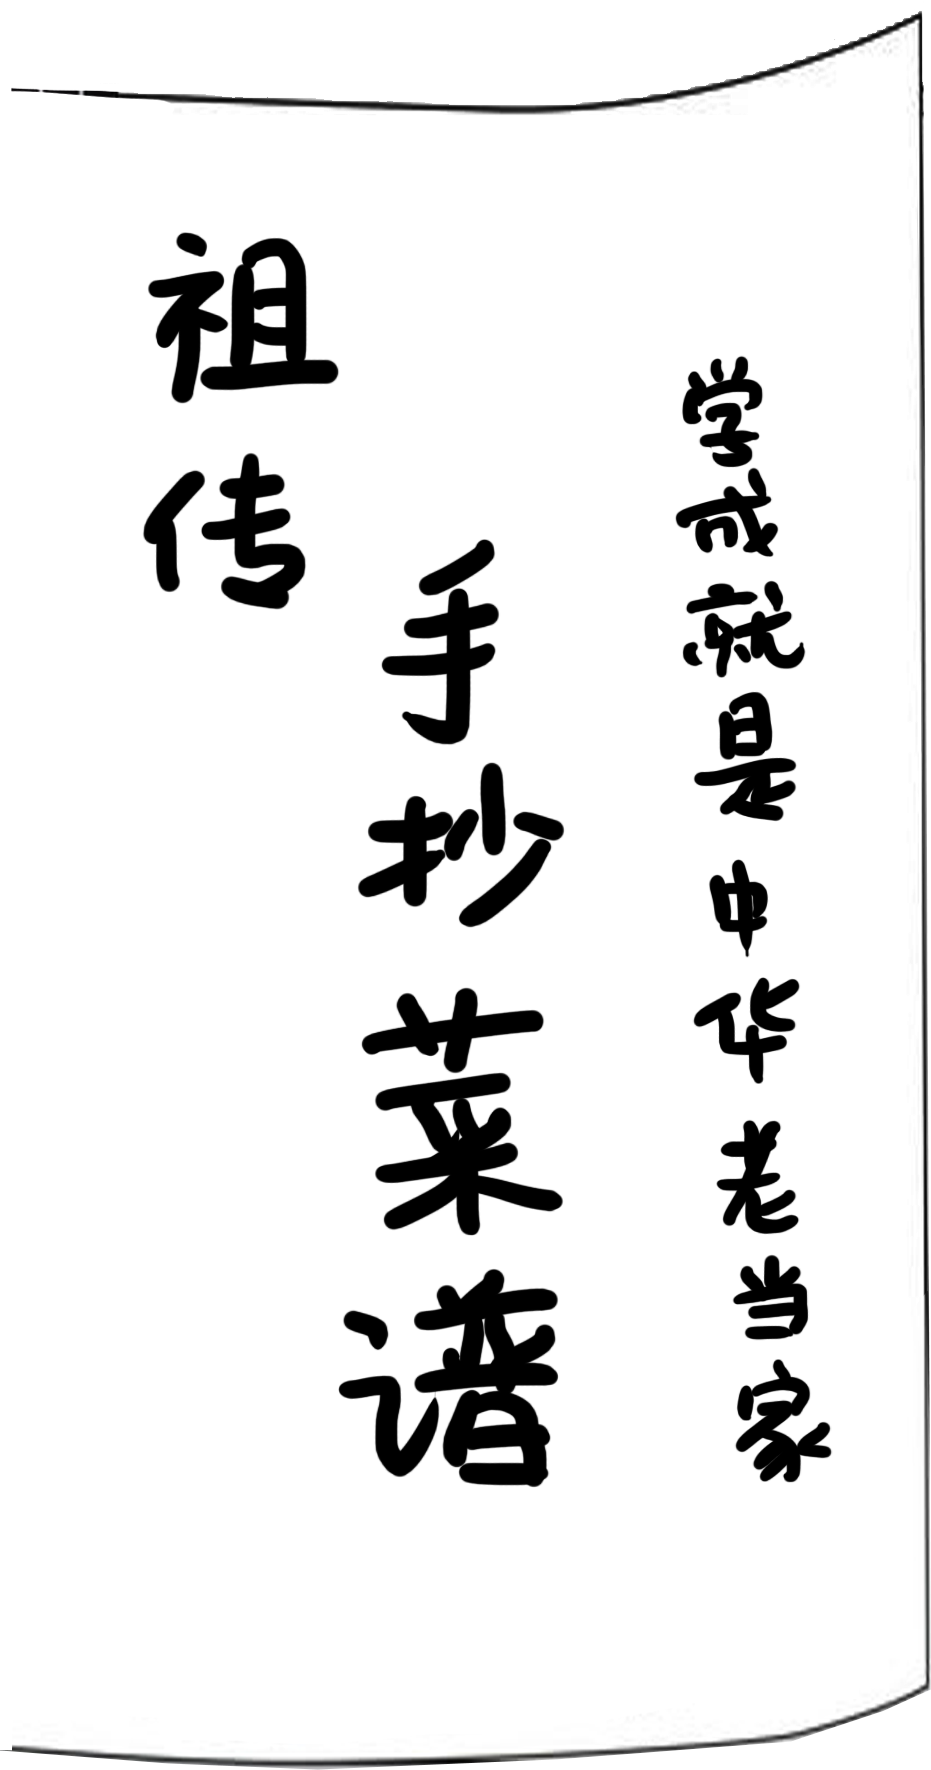 祖传
手抄菜谱
学成就是中华老当家